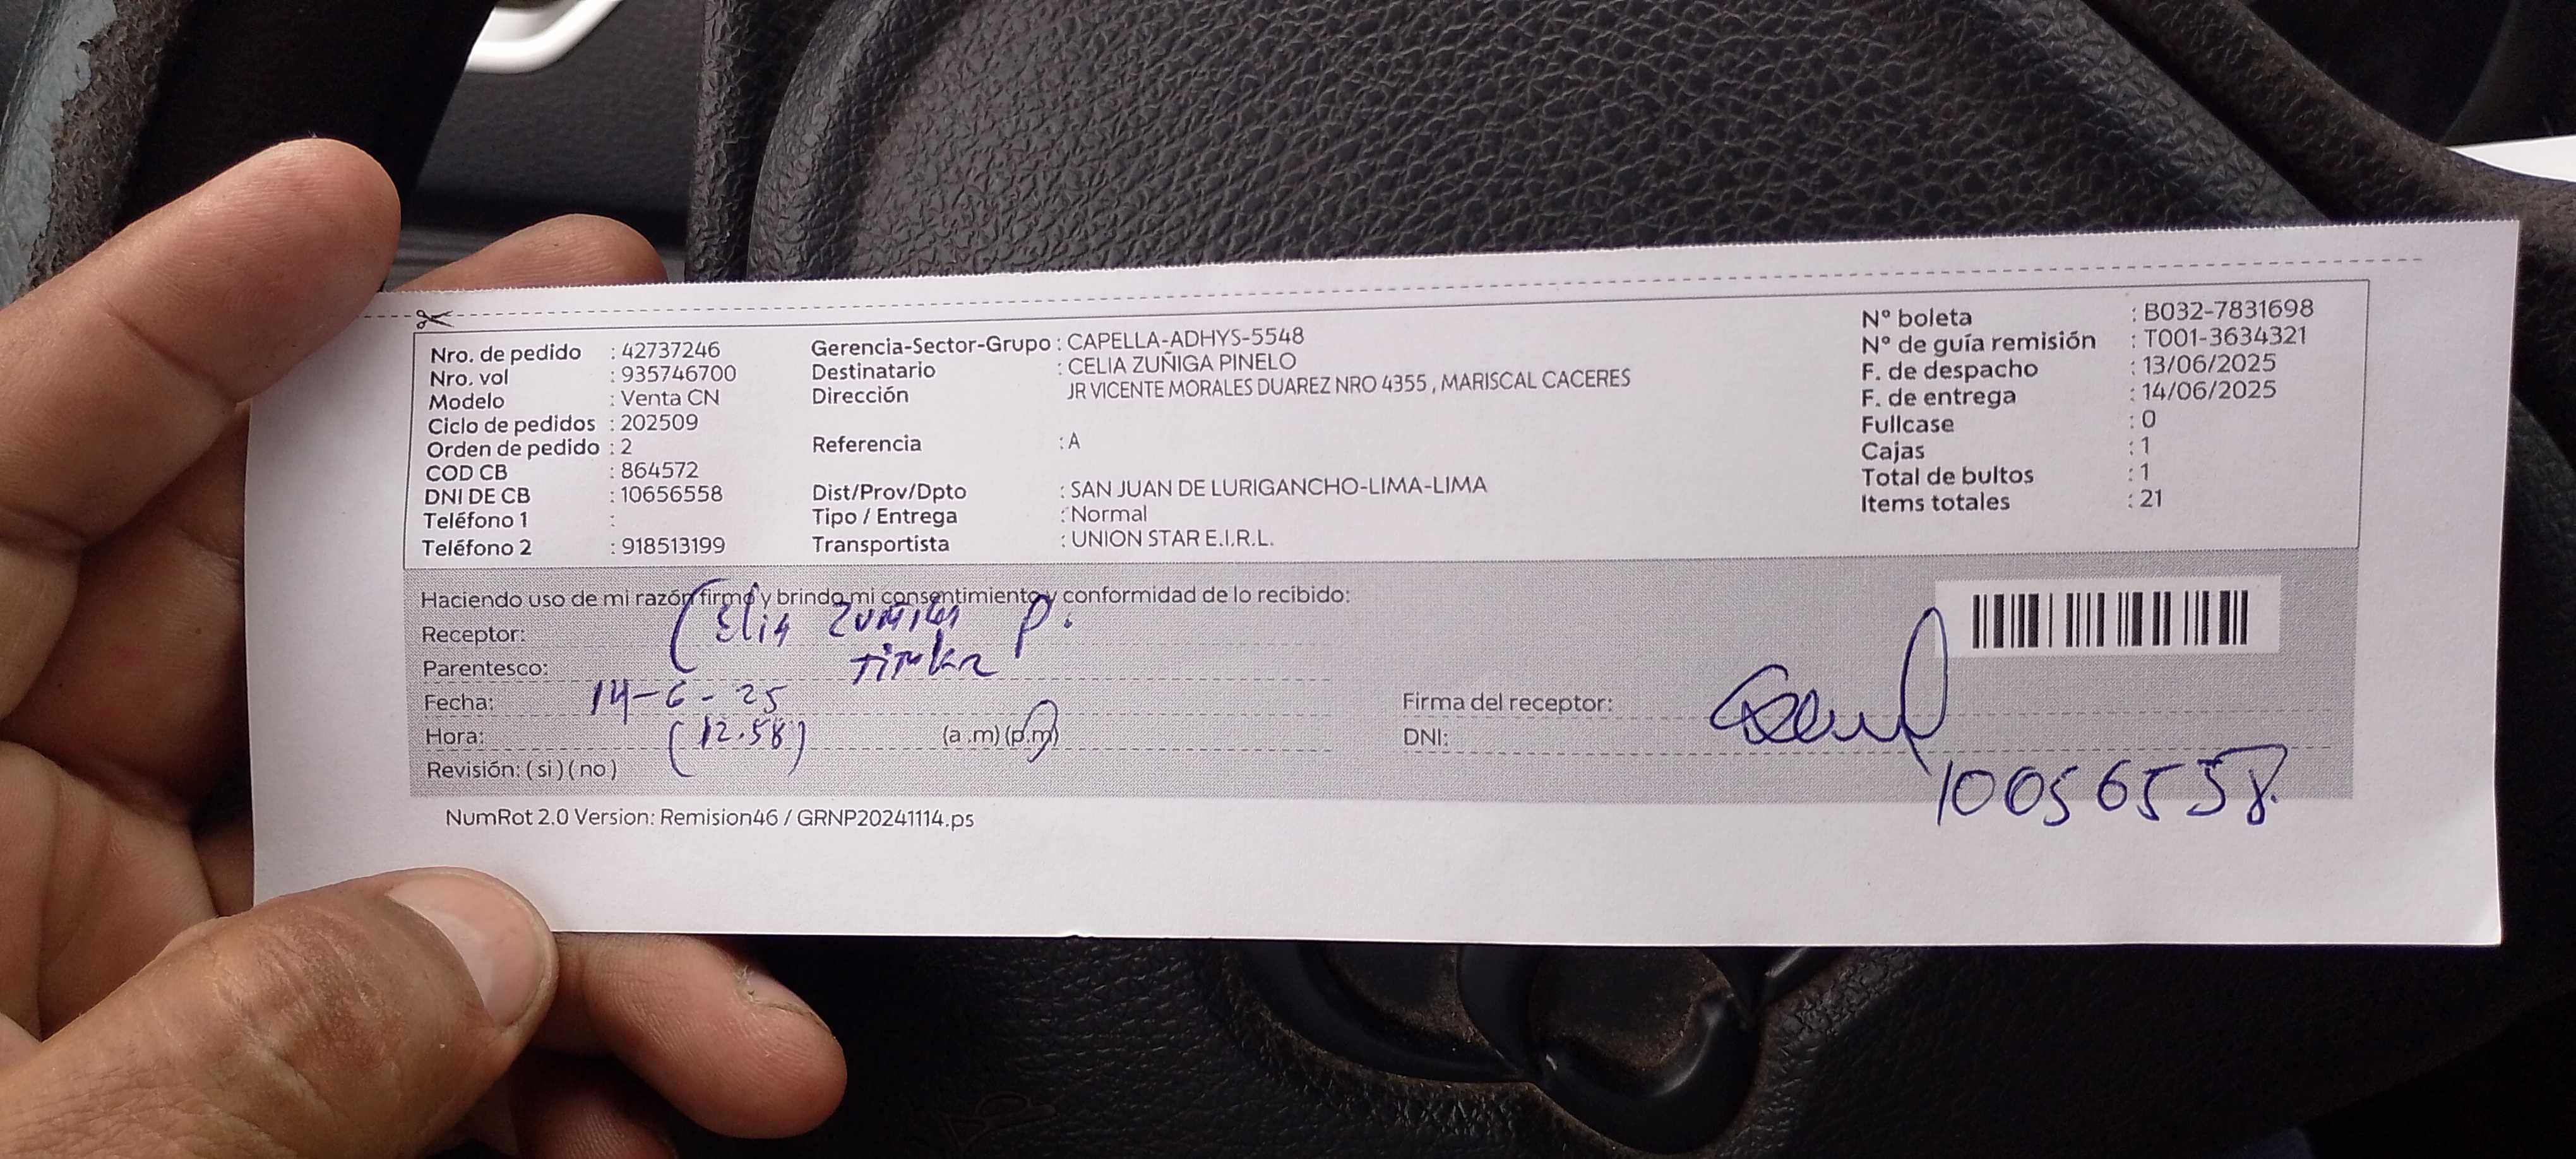 Nro. de pedido : 42737246
Nro. vol : 935746700
Modelo : Venta CN
Ciclo de pedidos : 202509
Orden de pedido : 2
COD CB : 864572
DNI DE CB : 10656558
Teléfono 1 :
Teléfono 2 : 918513199
Gerencia-Sector-Grupo : CAPELLA-ADHYS-5548
Destinatario : CELIA ZUÑIGA PINELO
Dirección JR VICENTE MORALES DUAREZ NRO 4355 , MARISCAL CACERES
Referencia : A
Dist/Prov/Dpto : SAN JUAN DE LURIGANCHO-LIMA-LIMA
Tipo / Entrega : Normal
Transportista : UNION STAR E.I.R.L.
N° boleta : B032-7831698
N° de guía remisión : T001-3634321
F. de despacho : 13/06/2025
F. de entrega : 14/06/2025
Fullcase : 0
Cajas : 1
Total de bultos : 1
Items totales : 21
Haciendo uso de mi razón firmo y brindo mi consentimiento y conformidad de lo recibido:
Receptor: Celia Zuñiga P.
Parentesco:
Fecha: 14-6-25
Hora: (12.58) (a .m) (p.m)
Revisión: ( si ) ( no )
Firma del receptor:
DNI: 10656558
NumRot 2.0 Version: Remision46 / GRNP20241114.ps